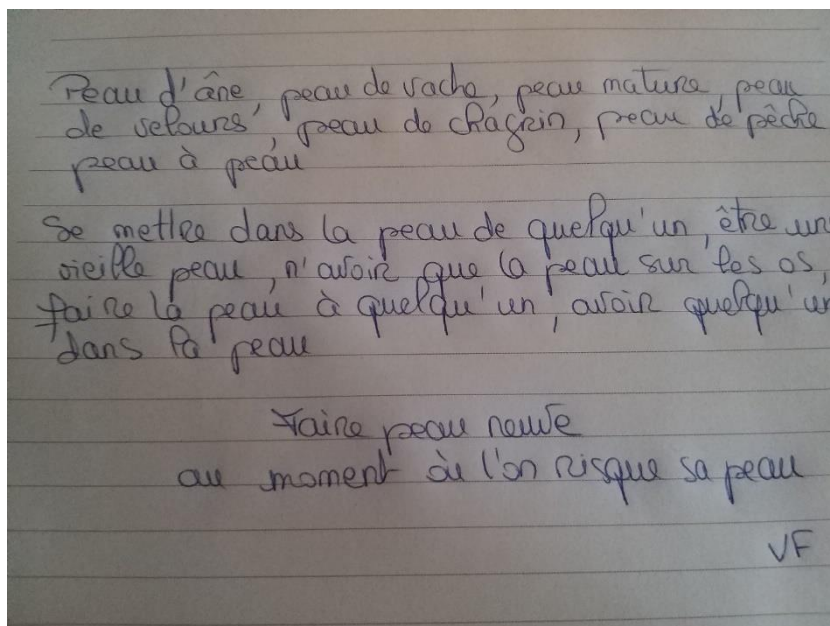 Peau d'âne, peau de vache, peau mature, peau
de velours, peau de chagrin, peau de pêche
peau à peau
Se mettre dans la peau de quelqu'un, être un
vieille peau, n'avoir que la peau sur les os,
faire la peau à quelqu'un, avoir quelqu'un
dans la peau
Faire peau neuve
au moment où l'on risque sa peau
VF